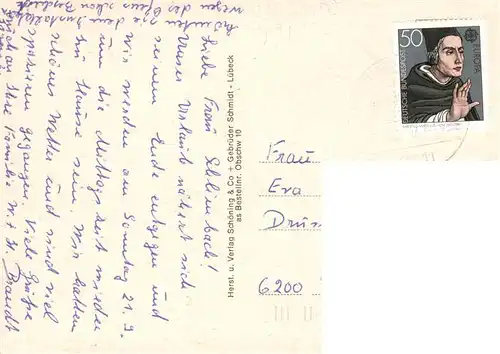 Liebe Frau Schlimbach!
Unser Urlaub nähert sich
seinem Ende entgegen und
wir werden am Sonntag 21.9.
um die Mittagszeit wieder
zu Hause sein. Wir hatten
schönes Wetter und sind viel
spazieren gegangen. Viele Grüße
auch an Ihre Familie W. + H. Brandt
wegen des
Herst. u. Verlag Schöning & Co + Gebrüder Schmidt - Lübeck
as Bestellnr. Obschw 10
50
DEUTSCHE BUNDESPOST
EUROPA
Frau
Eva
6200